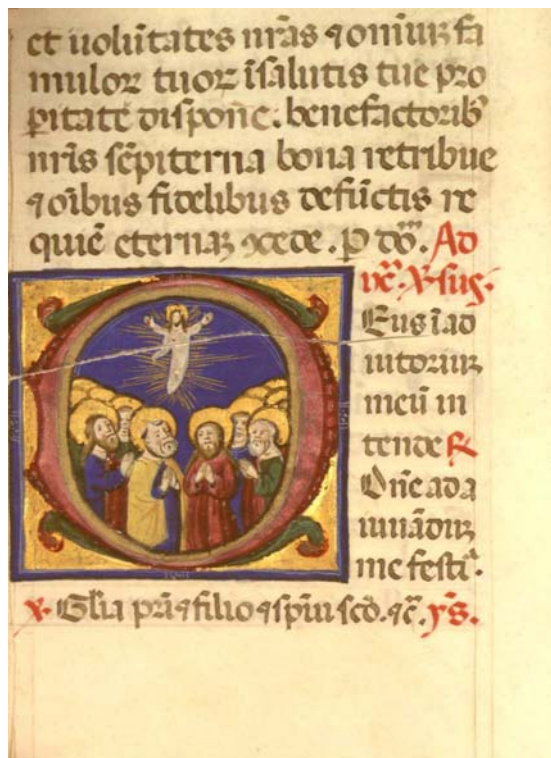 et uolūtates nr̄as ⁊ oīuꝫ fa
muloꝝ tuoꝝ ī salutis tue pro
ꝑitate dispone. benefactorib'
nr̄is sēpiterna bona retribue
⁊ oībus fidelibus defūctis re
quiē eternaꝫ ↄcede. P dō̄. Ad
vꝭ. V̵sus.
Eus ī ad
iutoriuꝫ
meū in
tende ℟
Dn̄e ad a
iuuādūꝫ
me festi.
℣. Gl̄ia pr̄i ⁊ filio ⁊ sp̄iui sc̄o. ⁊c̄. yꝰs.